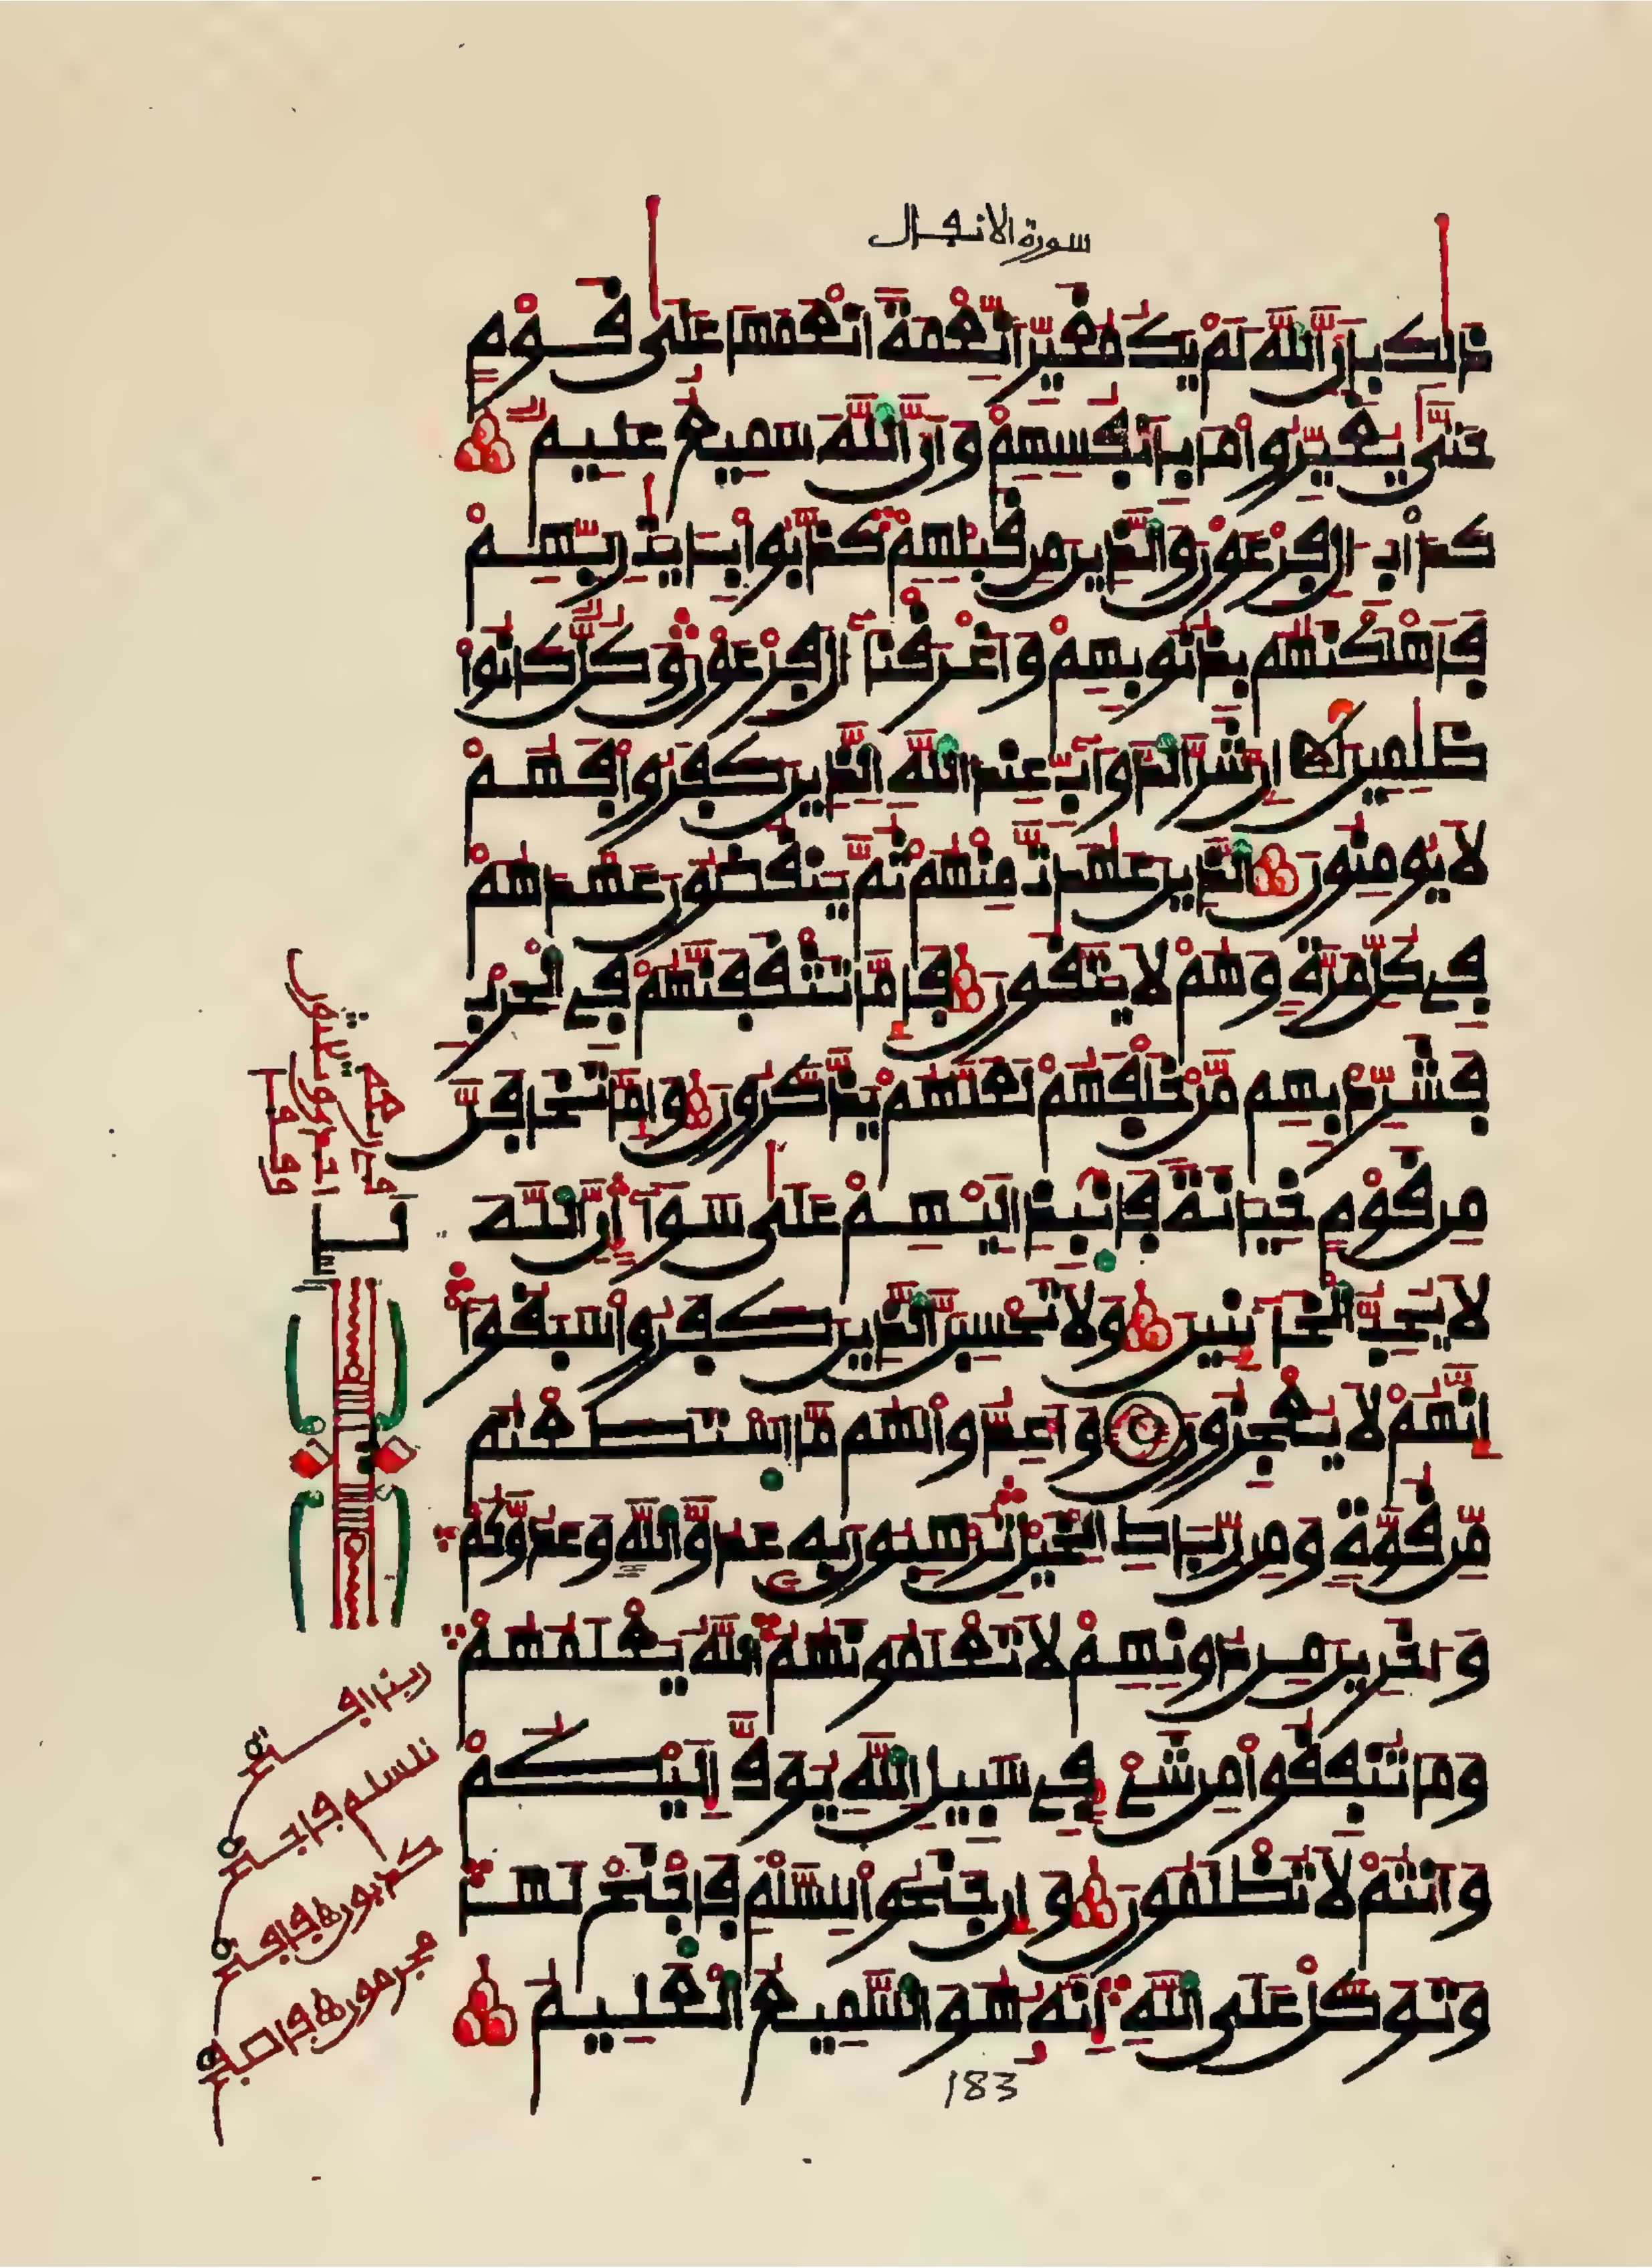 سورة الانفال
ذلك بأن الله لم يك مغيرا نعمة انعمها على قوم
حتى يغيروا ما بأنفسهم وأن الله سميع عليم
كدأب ءال فرعون والذين من قبلهم كذبوا بـايت ربهم
فأهلكنهم بذنوبهم وأغرقنا ءال فرعون وكل كانوا
ظلمين ان شر الدواب عند الله الذين كفروا فهم
لا يومنون الذين عهدت منهم ثم ينقضون عهدهم
في كل مرة وهم لا يتقون فإما تثقفنهم في الحرب
فشرد بهم من خلفهم لعلهم يذكرون وإما تخافن
من قوم خيانة فانبذ اليهم على سواء ان الله
لا يحب الخائنين ولا تحسبن الذين كفروا سبقوا
انهم لا يعجزون وأعدوا لهم ما استطعتم
من قوة ومن رباط الخيل ترهبون به عدو الله وعدوكم
وءاخرين من دونهم لا تعلمونهم الله يعلمهم
وما تنفقوا من شيء في سبيل الله يوف اليكم
وأنتم لا تظلمون وإن جنحوا للسلم فاجنح لها
وتوكل على الله انه هو السميع العليم
183